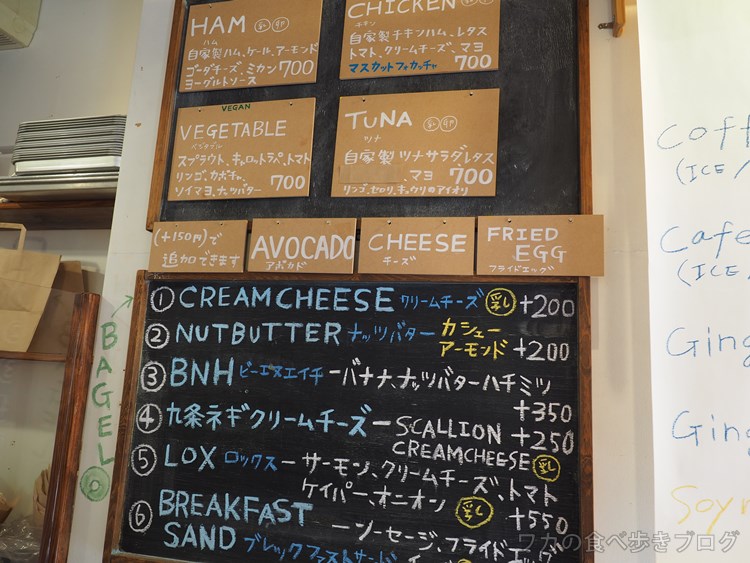 HAM 乳 卵
ハム
自家製ハム、ケール、アーモンド
ゴーダチーズ、ミカン 700
ヨーグルトソース
CHICKEN
チキン
自家製チキンハム、レタス
トマト、クリームチーズ、マヨ
マスカットフォカッチャ 700
VEGAN
VEGETABLE
ベジタブル
スプラウト、キャロットラペ、トマト
リンゴ、カボチャ、
ソイマヨ、ナッツバター 700
TUNA 乳 卵
ツナ
自家製ツナサラダ、レタス
マヨ 700
リンゴ、セロリ、キュウリのアイオリ
(+150円)で
追加できます
AVOCADO
アボカド
CHEESE
チーズ
FRIED
EGG
フライドエッグ
BAGEL
① CREAM CHEESE クリームチーズ 乳 +200
② NUTBUTTER ナッツバター カシュー
アーモンド +200
③ BNH ビーエヌエイチ ーバナナ、ナッツバターハチミツ
+350
④ 九条ネギクリームチーズ ー SCALLION +250
CREAMCHEESE 乳
⑤ LOX ロックス ー サーモン、クリームチーズ、トマト
ケイパー、オニオン 乳 +550
⑥ BREAKFAST
SAND ブレックファストサンド ーソーセージ、フライドエッグ
Coff
(ICE/
Cafe
(ICE/
Ging
Ging
Soy
ワカの食べ歩きブログ